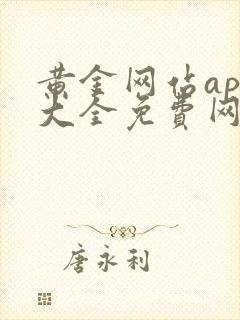 黄金网估ap
大全免費网
唐永利